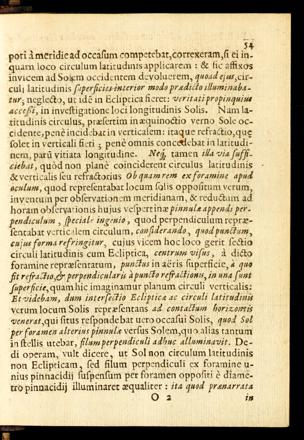 54
poti à meridie ad occasum competebat, correxeram, si ei in-
quam loco circulum latitudinis applicarem: & sic affixos
invicem ad Solem occidentem devoluerem, quod ejus, cir-
culi latitudinis superficies interior modo prædicto illuminaba-
tur; neglecto, ut idē in Ecliptica fieret: veritati propinquius
accessi, in investigatione loci longitudinis Solis. Nam la-
titudinis circulus, præsertim in æquinoctio verno Sole oc-
cidente, penè incidebat in verticalem: itaque refractio, quę
solet in verticali fieri; penè omnis concedebat in latitudi-
nem, parū vitiata longitudine. Neq́; tamen illa via suffi-
ciebat, quòd non planè coinciderent circulus latitudinis
& verticalis seu refractorius Ob quam rem ex foramine apud
oculum, quod repræsentabat locum solis oppositum verum,
inventum per observationem meridianam, & reductum ad
horam observationis hujus vespertinæ pinnulæ appendi per-
pendiculum, speciali ingenio, quod perpendiculum repræ-
sentabat verticalem circulum, considerando, quod punctum,
cujus forma refringitur, cujus vicem hoc loco gerit sectio
circuli latitudinis cum Ecliptica, centrum visus, à dicto
foramine repræsentatum, punctus in aëris superficie, à quo
fit refractio, & perpendicularis à puncto refractionis, in una sunt
superficie, quam hic imaginamur planum circuli verticalis:
Et videbam, dum intersectio Eclipticæ ac circuli latitudinis
verum locum Solis repræsentans ad contactum horizontis
venerat, qui situs respondebat vero occasui Solis, quod Sol
per foramen alterius pinnulæ versus Solem, quo alias tantum
in stellis utebar, filum perpendiculi adhuc alluminavit. De-
di operam, vult dicere, ut Sol non circulum latitudinis
non Eclipticam, sed filum perpendiculi ex foramine u-
nius pinnacidij suspensum per foramen oppositi è diame-
tro pinnacidij illuminaret æqualiter: ita quod prænarrata
O 2 in